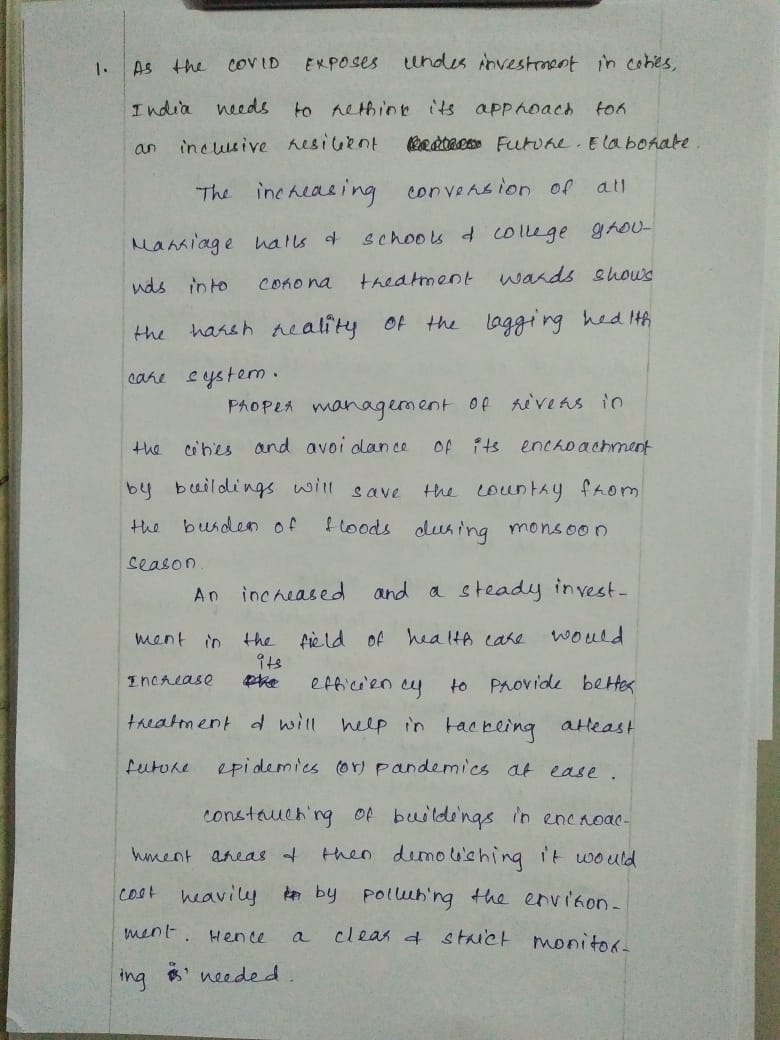 1. As the COVID Exposes under investment in cities,
India needs to rethink its approach for
an inclusive resilient Future. Elaborate.
The increasing conversion of all
Marriage halls & schools & college grou-
nds into corona treatment wards shows
the harsh reality of the lagging health
care system.
Proper management of rivers in
the cities and avoidance of its encroachment
by buildings will save the country from
the burden of floods during monsoon
season.
An increased and a steady invest-
ment in the field of health care would
Increase its efficiency to provide better
treatment & will help in tackling atleast
future epidemics (or) pandemics at ease.
constructing of buildings in encroac-
hment areas & then demolishing it would
cost heavily by polluting the environ-
ment. Hence a clear & strict monitor-
ing is needed.